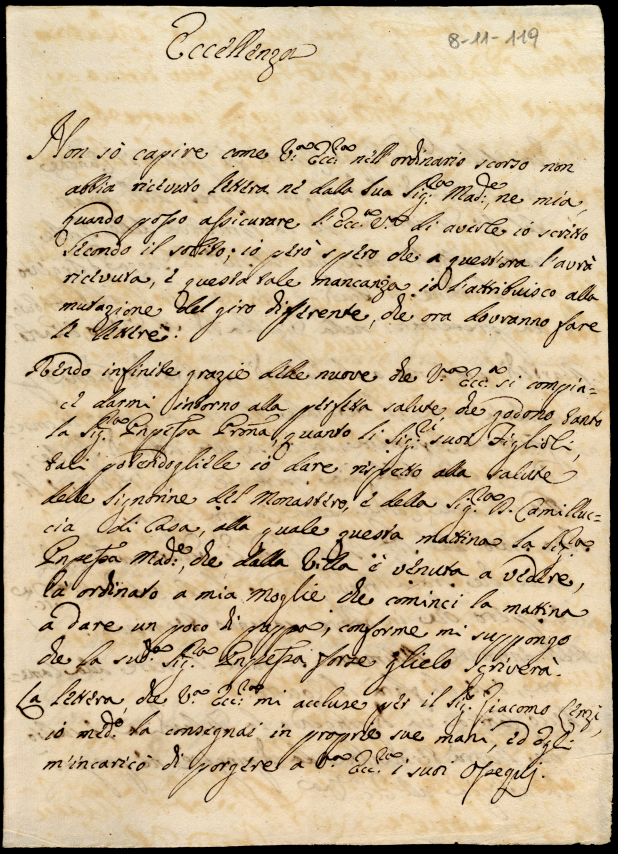 Eccellenza
8-11-119
Non sò capire come V.ra Ecc.za nell'ordinario scorso non
abbia ricevuto lettera nè dalla Sua Sig.ra Mad.e, ne mia,
quando posso assicurare l'Ecc.za V.ra di averle io scritto
secondo il solito; io però spero che a quest'ora l'avrà
ricevuta, e questa tale mancanza io l'attribuisco alla
mutazione del giro differente, che ora dovranno fare
le lettere.
Rendo infinite grazie delle nuove che V.ra Ecc.za si compia-
ce darmi intorno alla perfetta salute che godono tanto
la Sig.ra Pnpessa Prona, quanto li Sig.ri suoi Figlioli,
tali potendogliele io dare rispetto alla salute
delle Signorine del Monastero, e della Sig.ra D. Camilluc-
cia di Casa, alla quale questa mattina la Sig.ra
Pnpessa Mad.e, che dalla Villa è venuta a vedere,
hà ordinato a mia Moglie che cominci la mattina
a dare un poco di pappa, conforme mi suppongo
che la sud.a Sig.ra Pnpessa forse glielo scriverà.
La lettera, che V.ra Ecc.za mi accluse per il Sig.r Giacomo Cenzi,
io med.o la consegnai in proprie sue mani, ed Egli
m'incaricò di porgere a V.ra Ecc.za i suoi Ossequj.